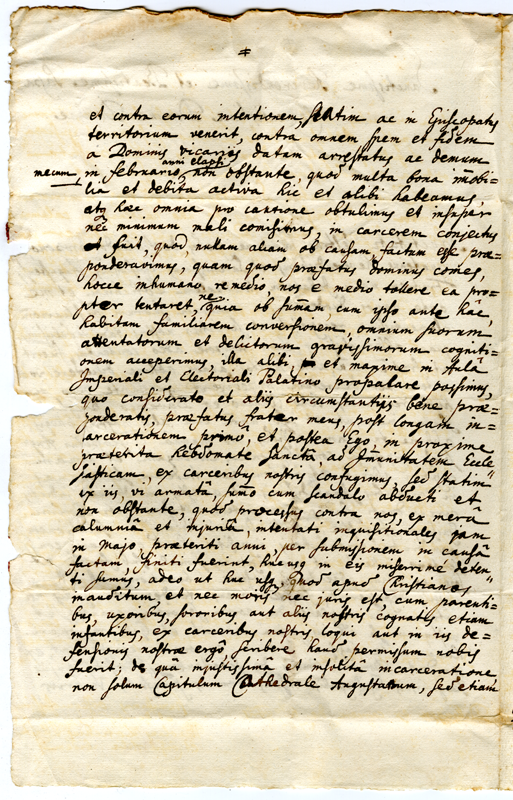 et contra eorum intentionem, statim ac in Episcopatus
territorium venerit, contra omnem spem et fidem
a Dominis vicariis datam arrestatus ac demum
anni elapsi
mecum, in februario, non obstante, quod multa bona immobi=
lia et debita activa hic et alibi habeamus,
atq haec omnia pro cautione obtulimus et insuper
nec minimum mali comisimus, in carcerem conjectus
fuit, quod nullam aliam ob causam factum esse prae=
ponderavimus, quam quod praefatus dominus comes,
hocce inhumano remedio, nos e medio tollere ea pro=
pter tentaret, ne quia ob summam, cum ipso ante hac
habitam familiarem conversionem, omnium suorum
attentatorum et delictorum gravissimorum cogniti=
onem acceperimus, illa alibi, et maxime in Aulâ
Imperiali et Electorali Palatino propalare possimus,
quo considerato et aliis circumstantijs bene prae=
ponderatis, praefatus frater meus, post longam in=
carcerationem primô, et postea Ego, in proxime
praeterita hebdomate Sanctâ, ad Immunitatem Eccle
siasticam, ex carceribus nostris confugimus, sed statim
vx iis, vi armatâ, sumo cum scandalo abducti et
non obstante, quod processus contra nos, ex merâ
calumniâ et injuriâ, intentati inquisitionales jam
in Majo, praeteriti anni, per submissionem in causâ
factam, finiti fuerint, hucusq in eis miserrime deten=
ti sumus, adeo ut huc usq, quod apud Christianos
inauditum et nec moris nec juris est, cum parenti=
bus, uxoribus, sororibus aut aliis nostris cognatis etiam
infantibus, ex carceribus nostris, loqui aut in iis de=
fensionis nostrae ergo, scribere haud permissum nobis
fuerit; de quâ injustissimâ et insolitâ incarceratione
non solum Capitulum Cathedrale Augustanum, sed etiam